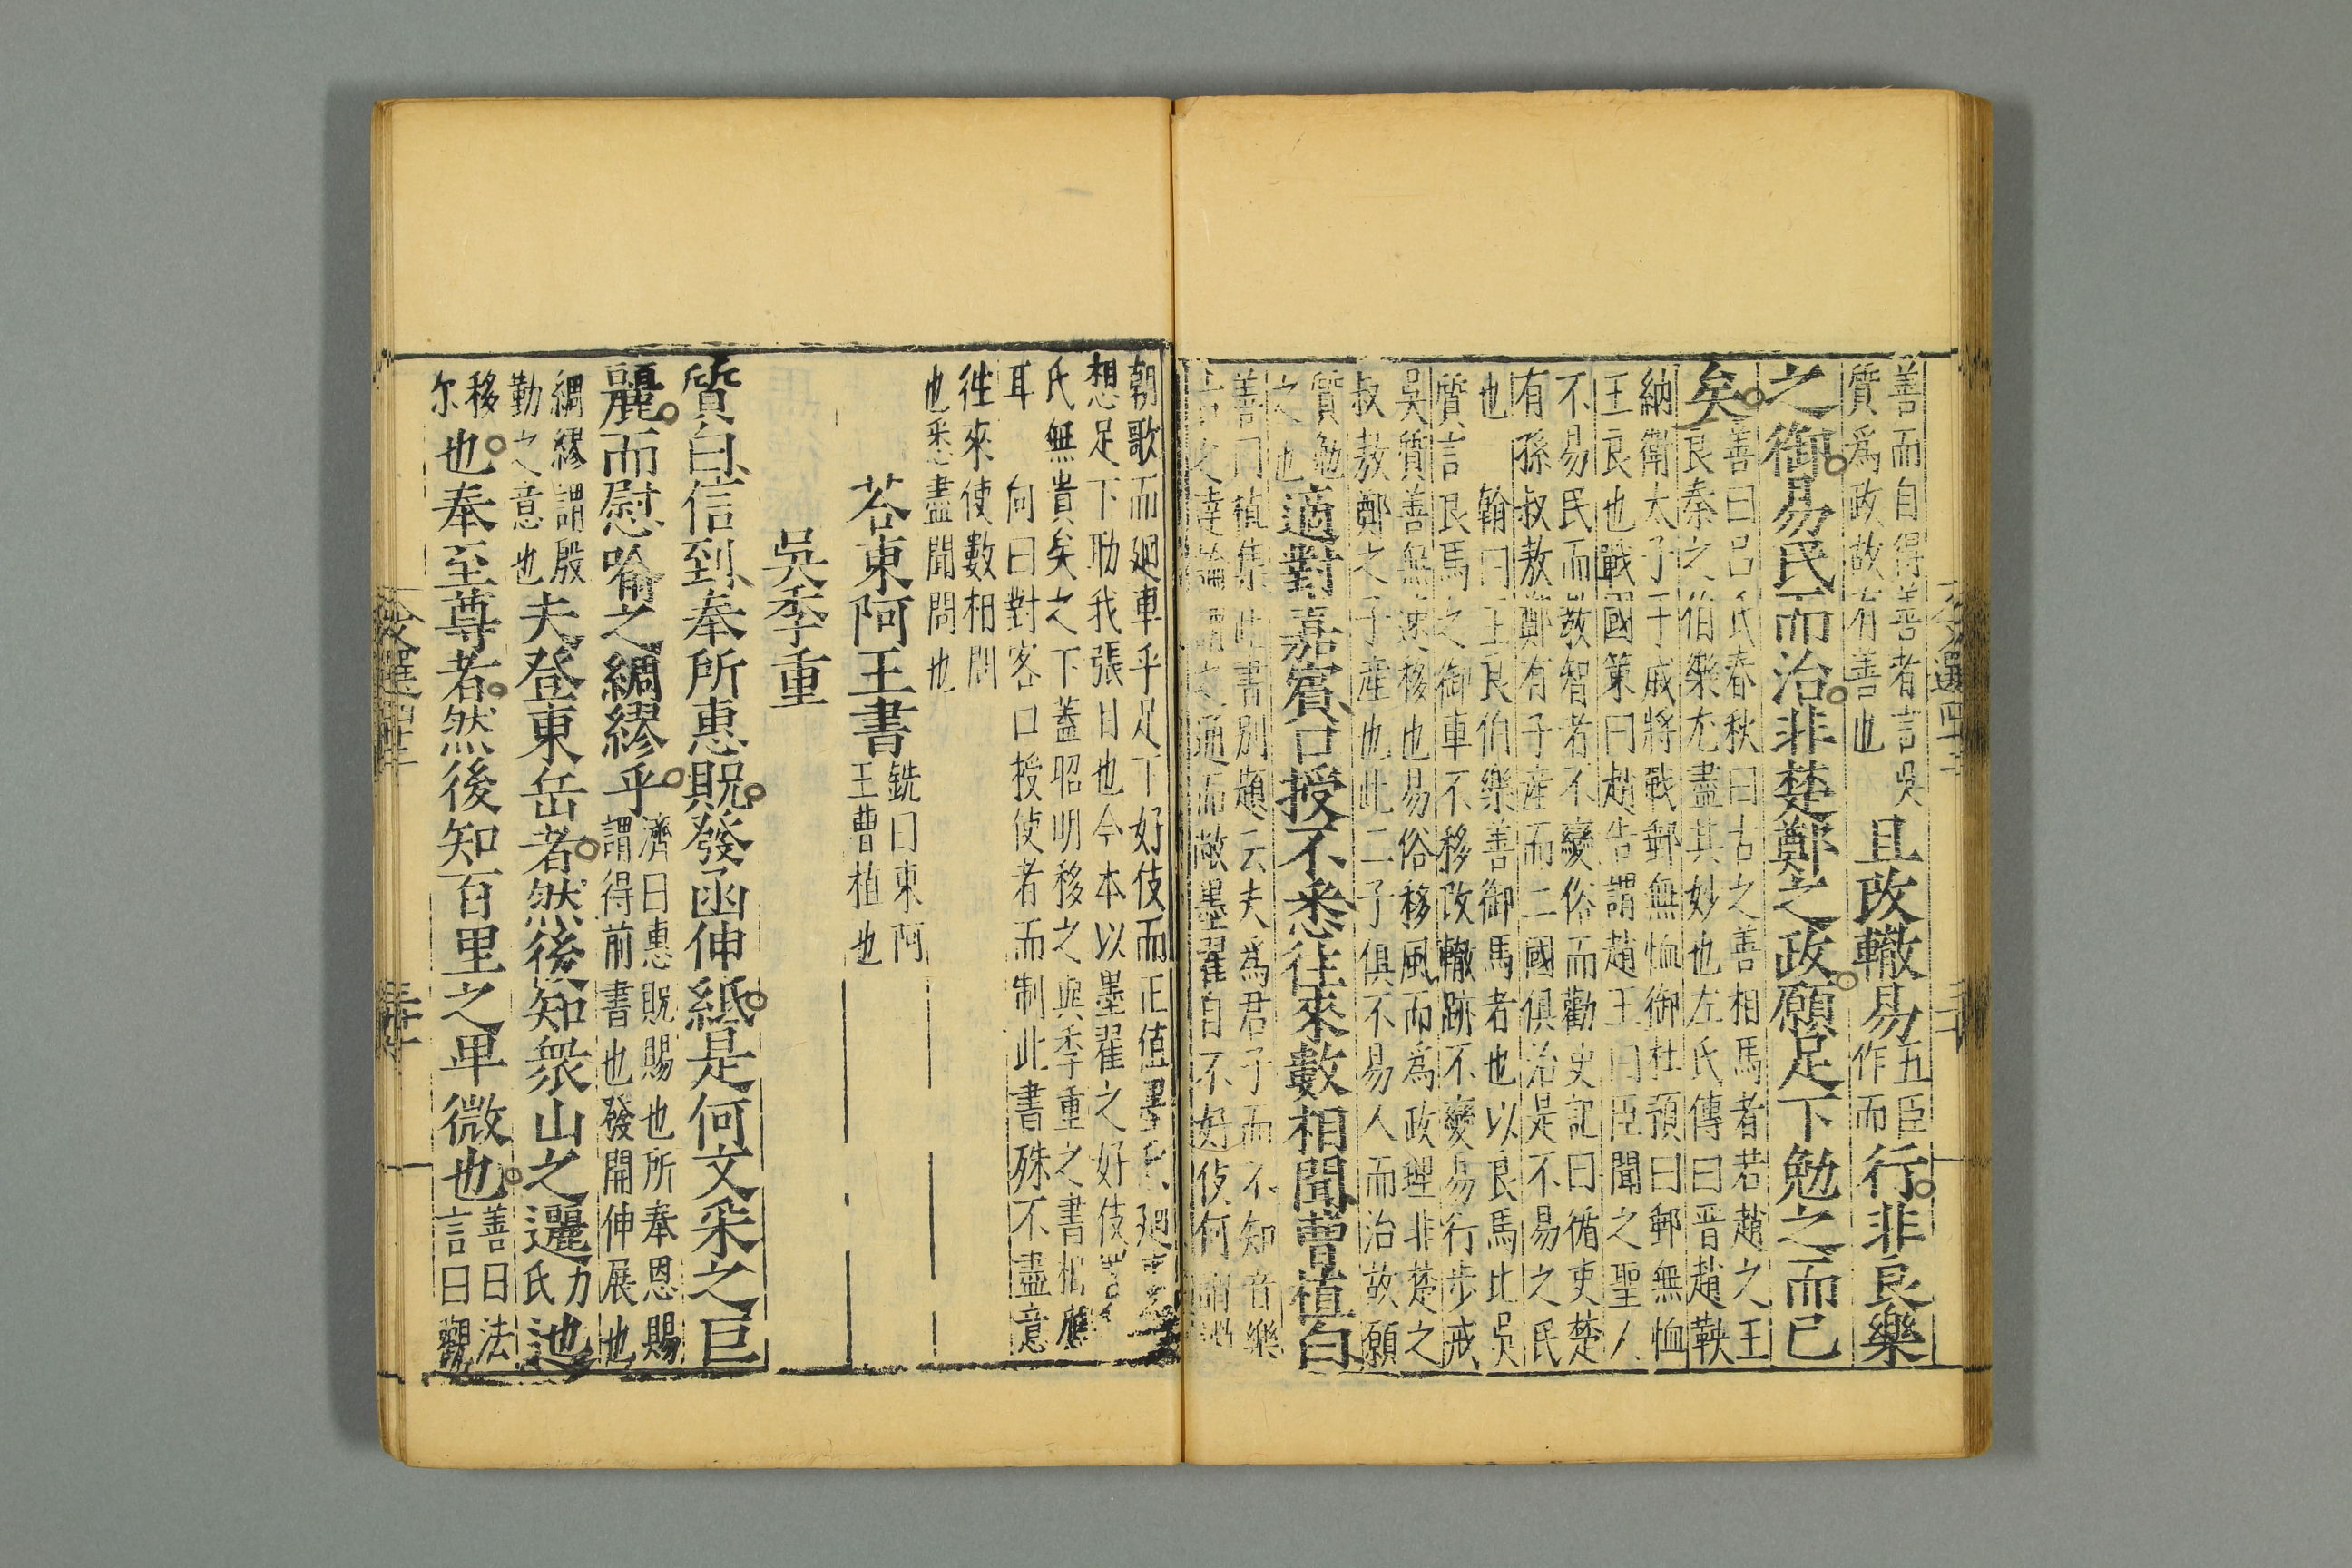 善而自得善者言吳
質爲政故有善也
且改轍易
五臣
作而
行非良樂
之御易民而治非楚鄭之政願足下勉之而已
矣
善曰吕氏春秋曰古之善相馬者若趙之王
良秦之伯樂尤盡其妙也左氏傳曰晋趙鞅
納衛太子于戚將戰郵無恤御杜預曰郵無恤
王良也戰國策曰趙告謂趙王曰臣聞之聖人
不易民而敎智者不變俗而勸史記曰循吏楚
有孫叔敖鄭有子產而二國俱治是不易之民
也 翰曰王良伯樂善御馬者也以良馬比吳
質言良馬之御車不移改轍跡不變易行步戒
吳質善無速移也易俗移風而為政理非楚之
叔敖鄭之子產也此二子俱不易人而治故願
質勉
之也
適對嘉賓口授不悉往來數相聞曹植白
善曰植集此書別題云夫爲君子而不知音樂
古之達論謂之通而蔽墨翟自不好伎何謂過
朝歌而廻車乎足下好伎而正值墨氏廻車之
想足下助我張目也今本以墨翟之好伎
氏無貴矣之下蓋昭明移之與季重之書相應
耳 向曰對客口授使者而制此書殊不盡意
徃來使數相問
也悉盡聞問也
荅東阿王書
銑曰東阿
王曹植也
吳季重
質白信到奉所惠貺發函伸紙是何文采之巨
麗而慰喻之綢繆乎
濟曰惠貺賜也所奉恩賜
謂得前書也發開伸展也
綢繆謂殷
勤之意也
夫登東岳者然後知衆山之邐
力
氏
迆
移
尔
也奉至尊者然後知百里之卑微也
善曰法
言曰觀